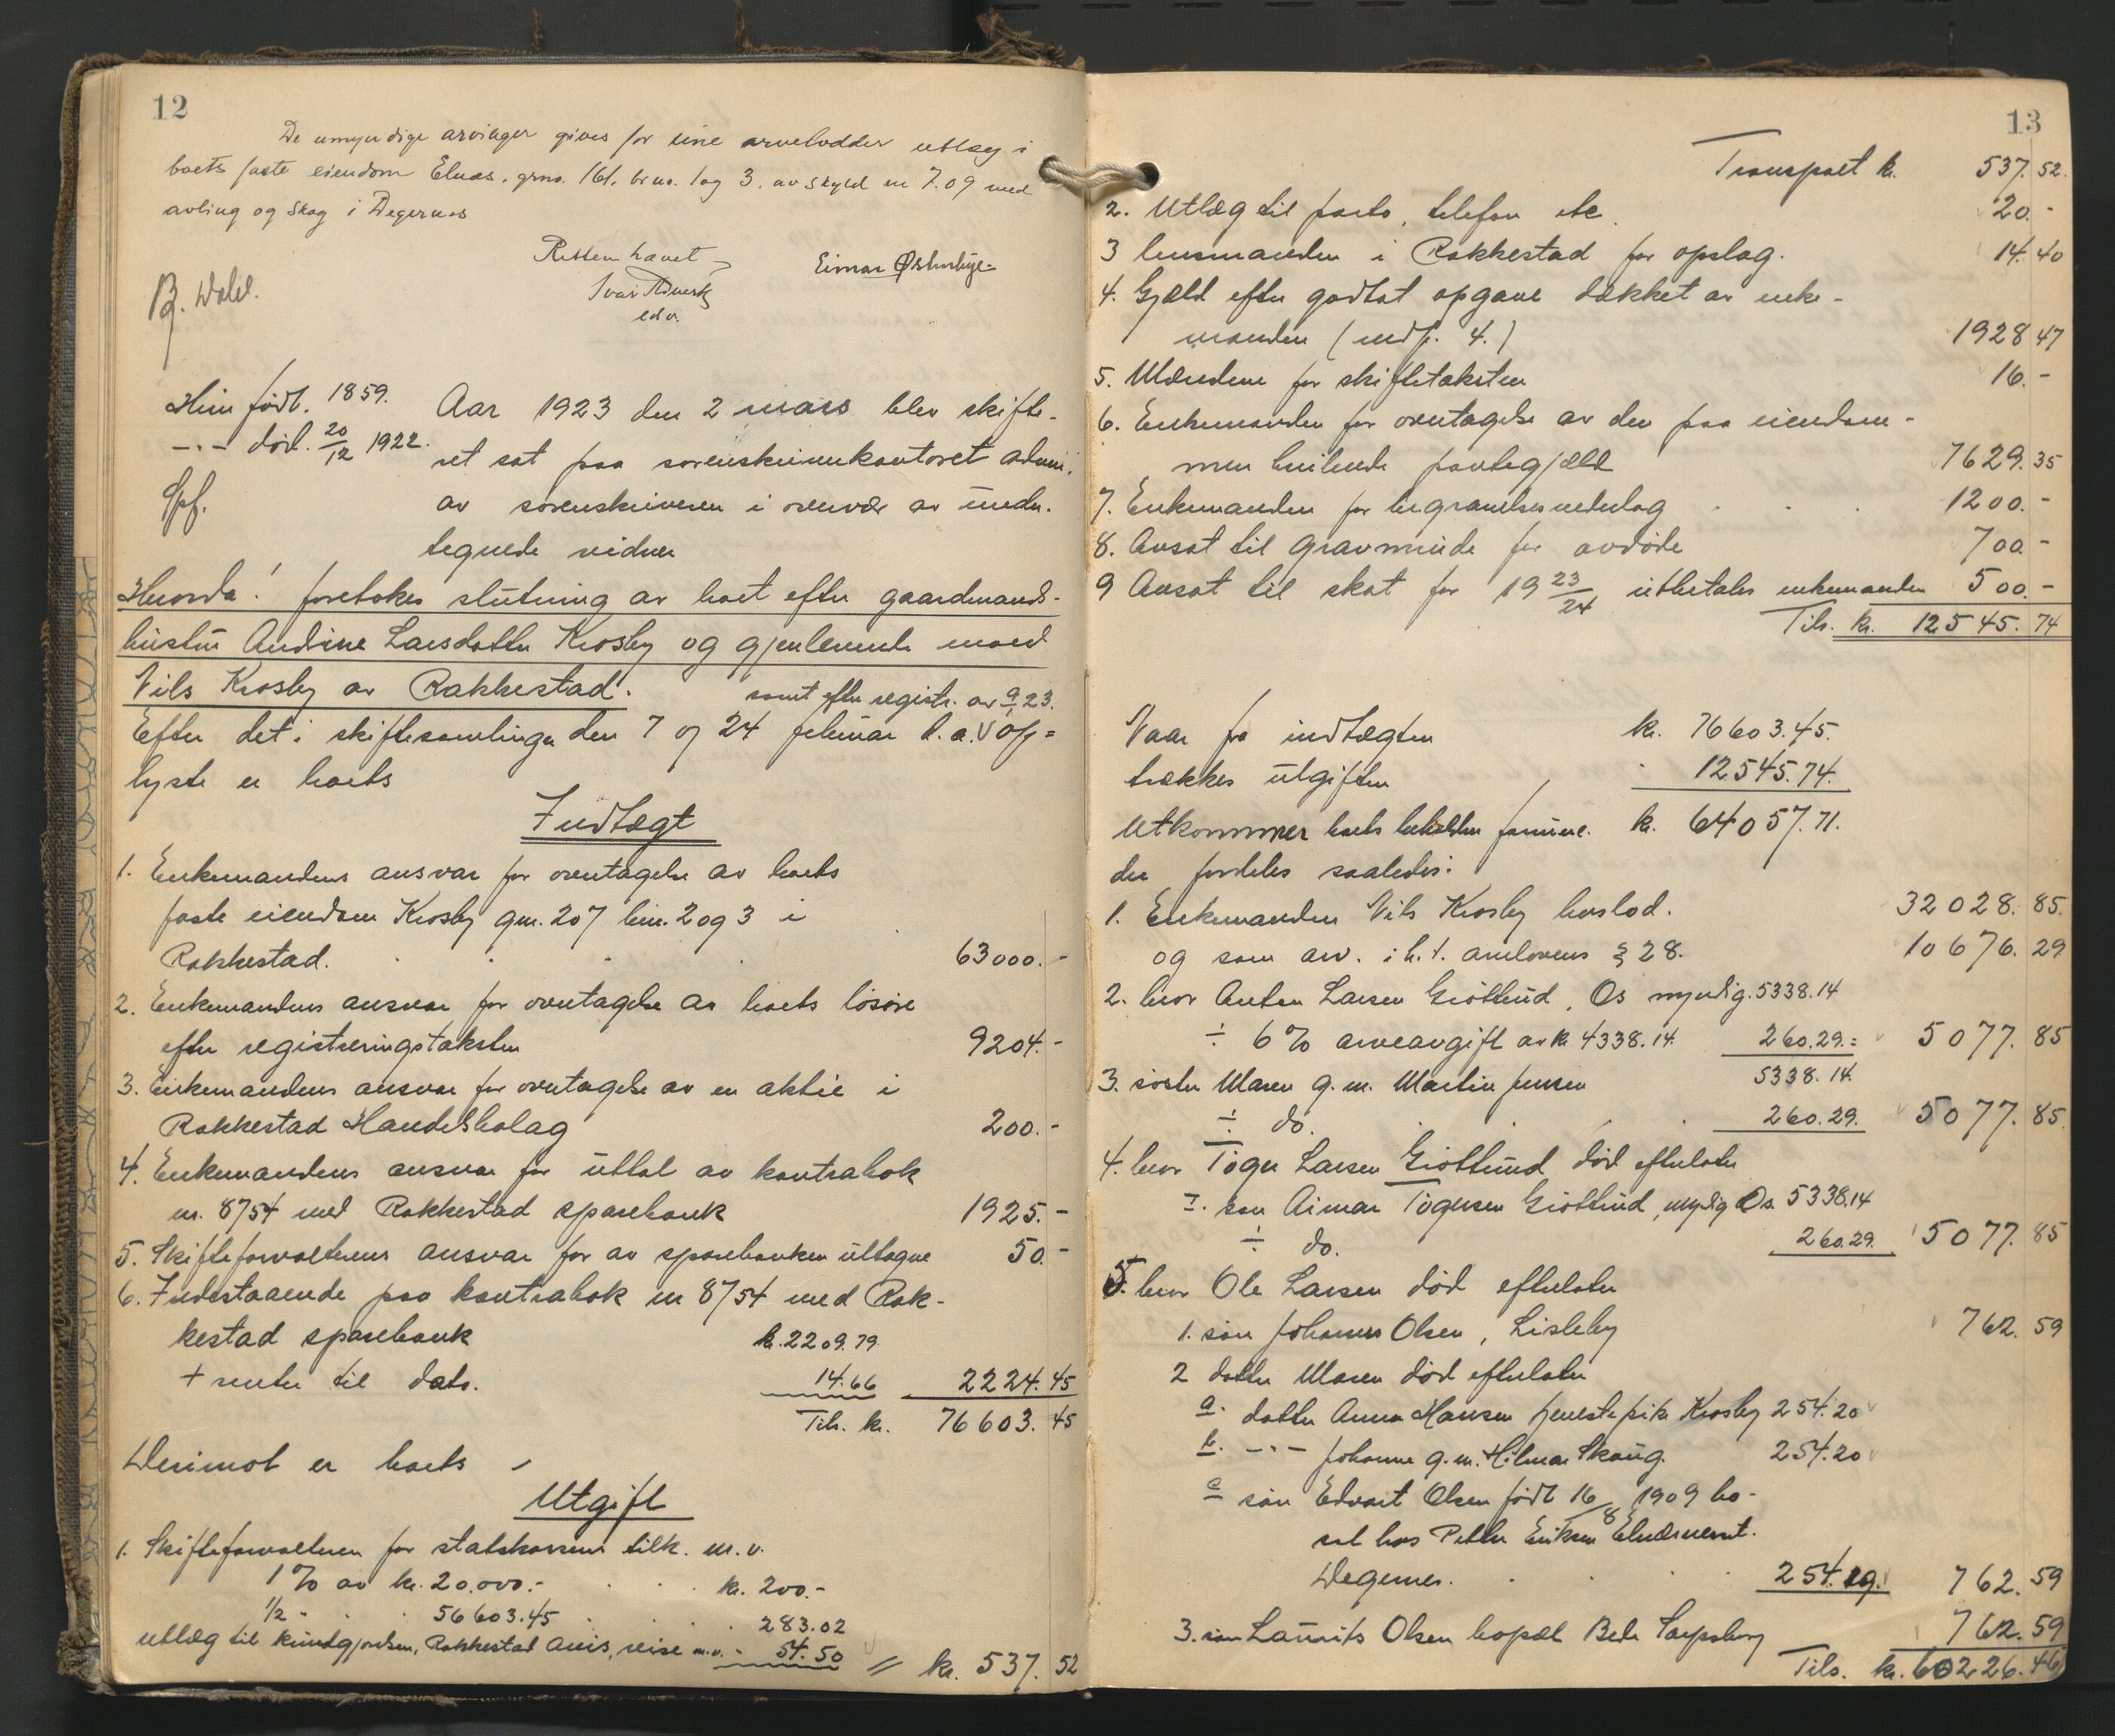 12
De umyndige arvinger gives for sine arvelodder utlæg i
boets faste eiendom Elnæs. grno. 161. br no. 1 og 3. av skyld m 7.09 med
avling og skog i Degernes
Retten hævet
Einar Østenbye
edv.
Hun født. 1859.
-"- død. 20/12 1922.
Aar 1923 den 2 mars blev skifte-
ret sat paa sorenskriverkontoret adm.
av sorenskriveren i overvær av under-
tegnede vidner
Hvorda! foretokes slutning av boet efter gaardmands-
hustru Andrine Larsdatter Krosby og gjenlevende mand
Nils Krosby av Rakkestad.
samt efter registr. av 9/1 23.
Efter det i skiftesamlinger den 7 og 24 februar d. a. v op=
lyste er boets
Indtægt
1. Enkemandens ansvar for overtagelse av boets
faste eiendom Krosby gnr. 207 bnr. 2 og 3 i
Rakkestad. 63000.-
2. Enkemandens ansvar for overtagelse av boets løsøre
efter registreringstaksten 9204.-
3. Enkemandens ansvar for overtagelse av en aktie i
Rakkestad Handelsbolag 200.-
4. Enkemandens ansvar for uttat av kontrabok
nr. 8754 med Rakkestad sparebank 1925.-
5. Skifteforvalterens ansvar for av sparebanken uttagne 50.-
6. Indestaaende paa kontrabok nr 8754 med Rak-
kestad sparebank kr. 2209.79
+ renter til dato. 14.66 2224.45
Tils. kr. 76603.45
Derimot er boets
Utgift
1. Skifteforvalteren for statskassens tilk. m. v.
1% av kr. 20.000.- kr. 200.-
1/2 " 56603.45 283.02
utlæg til kundgjørelsen, Rakkestad Avis, reise m.v. - 54.50 = kr. 537.52
13
Transport kr. 537.52.
2. Utlæg til porto, telefon etc. 20.-
3 lensmanden i Rakkestad for opslag. 14.40
4. Gjæld efter godtat opgave dækket av enke-
manden ( indt. 4.) 1928.47
5. Mændene for skiftetaksten 16.-
6. Enkemanden for overtagelse av den paa eiendom-
men hvilende pantegjæld 7629.35
7. Enkemanden for begravelsesutlæg 1200.-
8. Avsat til gravminde for avdøde 700.-
9 Avsat til skat for 19 23/24 utbetales enkemanden 500.-
Tils. kr. 12545.74
Naar fra indtægten kr. 76603.45.
trækkes utgiften 12545.74.
utkommer boets beholdne formue. kr. 64057.71.
der fordeles saaledes:
1. Enkemanden Nils Krosby boslod. 32028.85.
og som arv. i h. t. arvelovens § 28. 10676.29
2. bror Anton Larsen Grøtlund, Os myndig. 5338.14
÷ 6% arveavgift av kr. 4338.14. 260.29.= 5077.85
3. søster Maren g. m. Martin Jensen 5338.14.
÷ do. 260.29. 5077.85.
4. bror Tøger Larsen Grøtlund død efterlater
1. søn Aimar Tøgersen Grøtlund, myndig Os. 5338.14
÷ do. 260.29. 5077.85
5. bror Ole Larsen død efterlater
1. søn Johannes Olsen, Lisleby 762.59
2 datter Maren død efterlater
a. datter Anna Hansen tjenestepike Krosby 254.20
b. -"- Johanne g. m. Hilmar Skaug. 254.20
c søn Edvart Olsen født 16/8 1909 bo-
sat hos Petter Eriksen
Degernes. 254.19. 762.59
3. søn Laurits Olsen bopæl Sarpsborg 762.59
Tils. kr. 60226.46